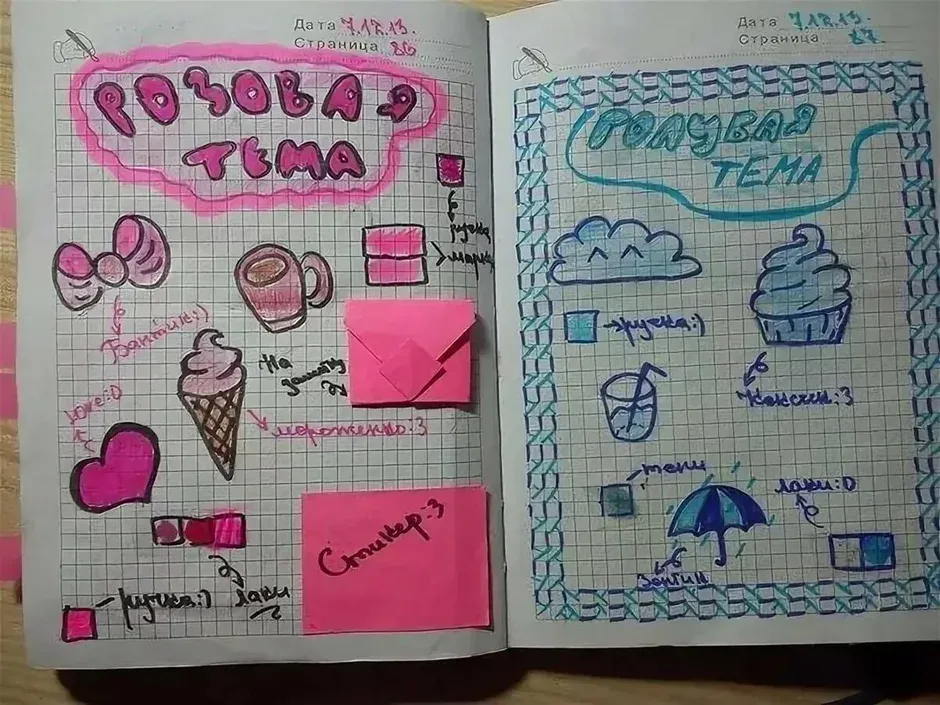 Дата 7.12.13.
Страница 86
РОЗОВАЯ
ТЕМА
ручка
Бантик:)
На
заметку
love:D
мороженко:3
Стикер:3
ручка:)
лаки
Дата 7.12.13.
Страница 87
ГОЛУБАЯ
ТЕМА
ручка:)
Кексик:3
тени
лаки:D
Зонтик